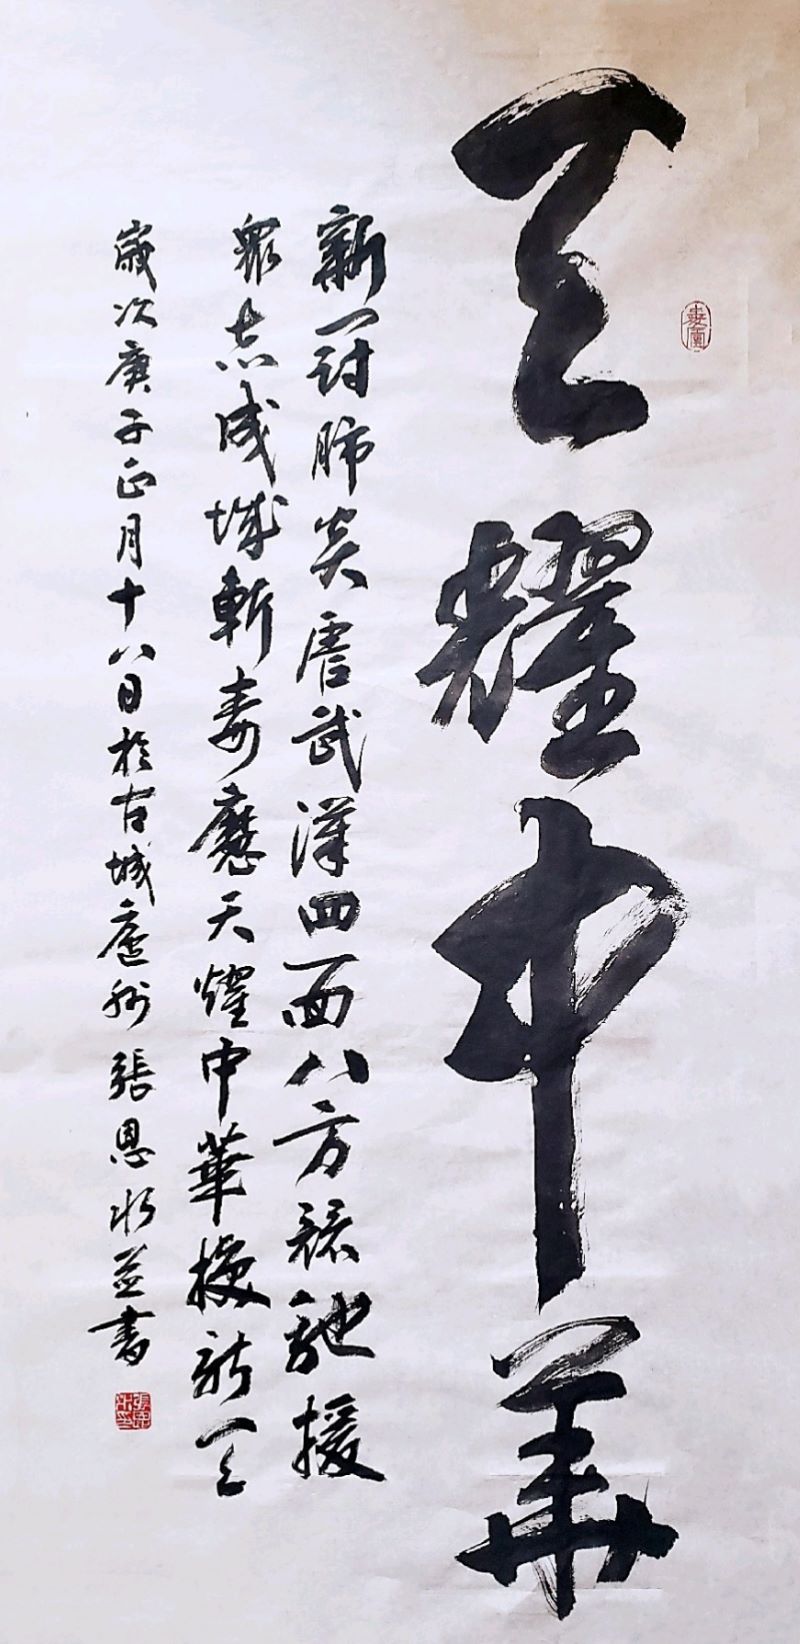 天耀中華
新冠肺炎虐武漢四面八方馳援
眾志成城斬毒天耀中華換新天
歲次庚子正月十八日於古城廬州張恩並書